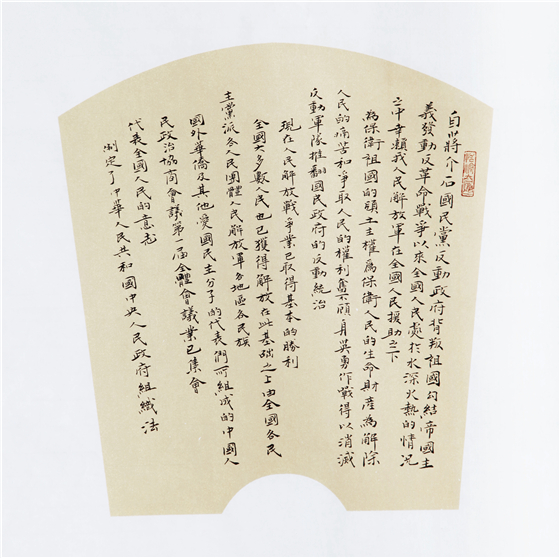 自蔣介石國民黨反動政府背叛祖國勾結帝國主
義發動反革命戰爭以來全國人民處於水深火熱的情況
之中幸賴我人民解放軍在全國人民援助之下
為保衛祖國的領土主權為保衛人民的生命財產為解除
人民的痛苦和爭取人民的權利奮不顧身英勇作戰得以消滅
反動軍隊推翻國民政府的反動統治
現在人民解放戰爭業已取得基本的勝利
全國大多數人民也已獲得解放在此基础之上由全國各民
主黨派各人民團體人民解放軍各地區各民族
國外華僑及其他愛國民主分子的代表們所組成的中國人
民政治協商會議第一屆全體會議業已集會
代表全國人民的意志
制定了中華人民共和國中央人民政府組織法